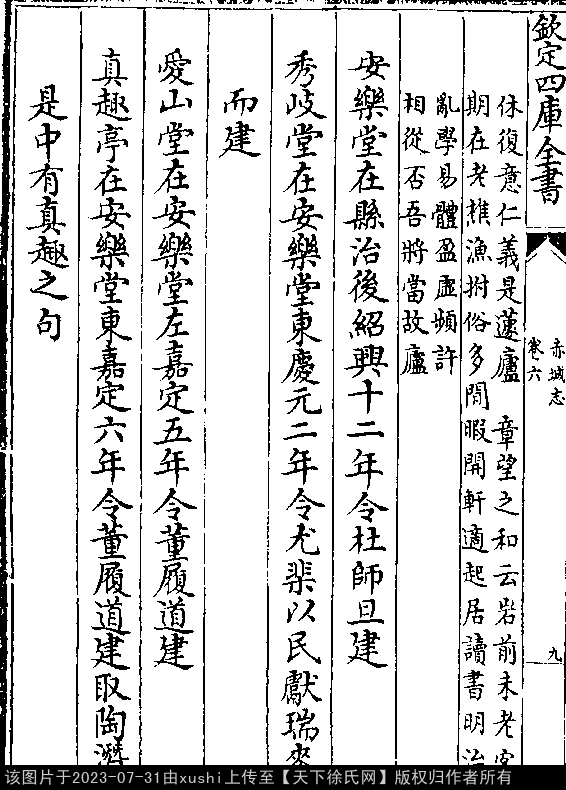 欽定四庫全書
赤城志
卷六
九
休復意仁義是蘧廬　章望之和云岩前未老客
期在老樵漁拊俗多閒暇開軒適起居讀書明治
亂學易體盈虛頻許
相從否吾將當故廬
安樂堂在縣治後紹興十二年令杜師旦建
秀岐堂在安樂堂東慶元二年令尤棐以民獻瑞麥
而建
愛山堂在安樂堂左嘉定五年令董履道建
真趣亭在安樂堂東嘉定六年令董履道建取陶潛
是中有真趣之句
该图片于2023-07-31由xushi上传至【天下徐氏网】版权归作者所有